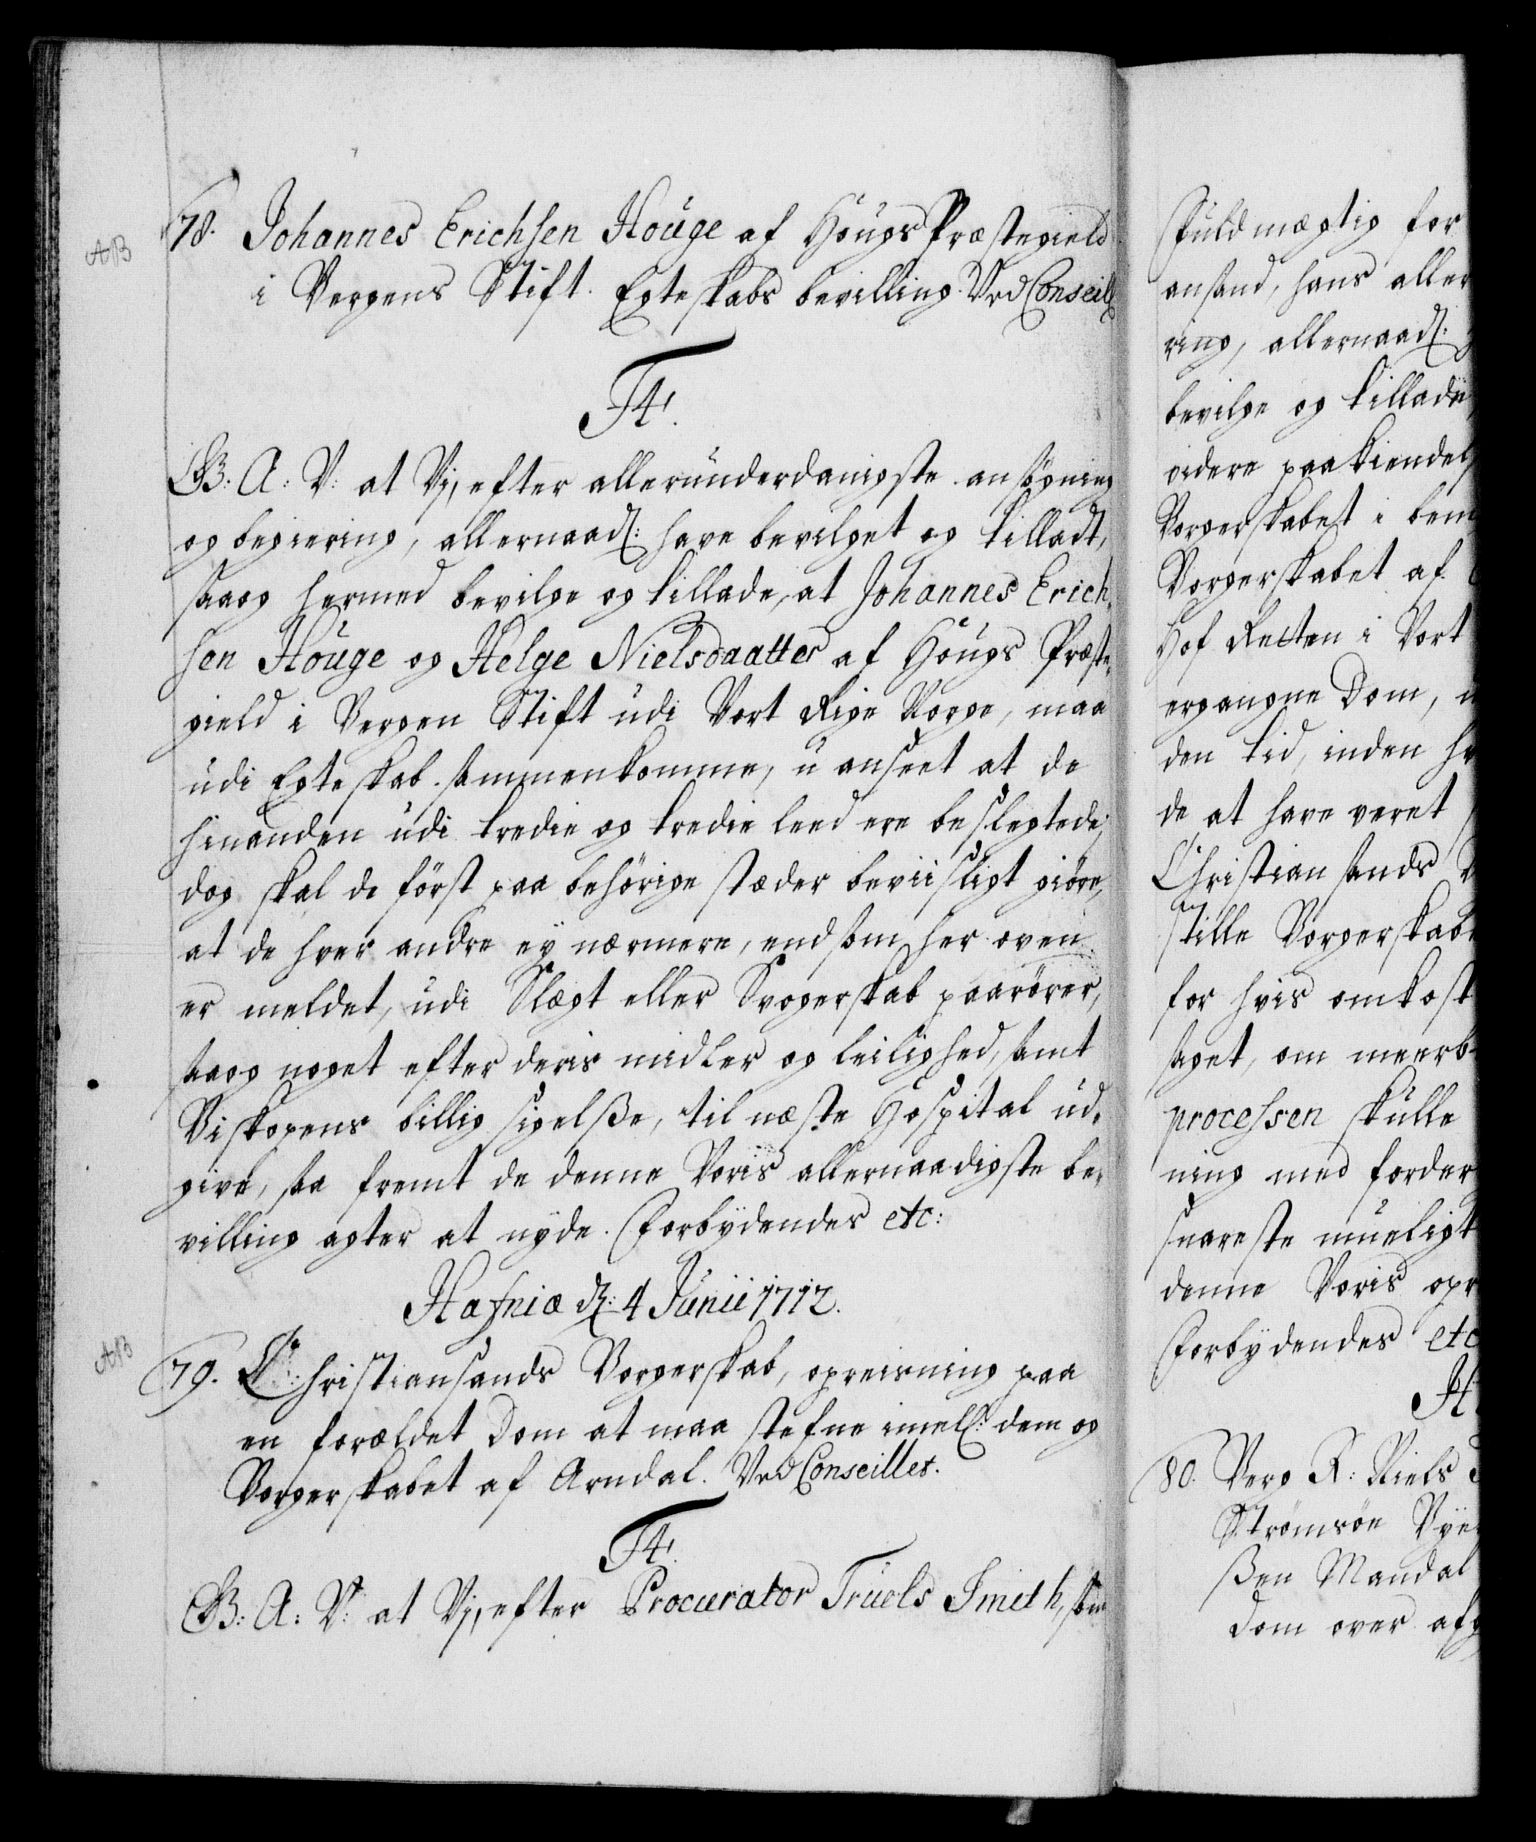 AB
78. Johannes Erichsen Houge af Hougs Præstegield
i Bergens Stift. Egteskabs bevilling. Ved Conseill
F4!
G. B. A: V: at Vj, efter allerunderdanigste ansøgning
og begiering, allernaadl: have bevilget og tilladt,
saa og hermed bevilge og tillade, at Johannes Erich-
sen Houge og Helge Nielsdaatter af Hougs Præste-
gield i Bergen Stift udi Vort Rige Norge, maa
udi Egteskab sammenkomme, u anseet at de
hinanden udi tredie og tredie leed ere beslegtede,
dog skal de först paa behörige stæder beviisligt giöre,
at de hver andre eÿ nærmere, end som her oven
er meldet, udi Slægt eller Svogerskab paarörer,
saa og noget efter deris midler og leilighed, samt
Biskopens billig sigelsße, til næste Hospital ud-
give, saa fremt de denne Voris allernaadigste be-
villing agter at nyde. Forbÿdendes etc:
Hafniæ d: 4 Junii 1712.
AB
79. Christiansands Borgerskab, opreisning paa
en forældet Dom at maa stefne imell: dem og
Borgerskabet af Arndal. Ved Conseillet.
F4!
G. B: A: V: at Vj, efter Procurator Truels Smith, som
fuldmægtig for
ansand, hans aller
ring, allernaadl:
bevilge og tillade
videre paakiendels
Borgerskabet i bem
Borgerskabet af
Hof Retten i Vort
ergangne Dom,
den tid, inden hv
de at have veret
Christiansands
stille Borgerskab
for hvis omkost
saget, om meerb
processen skulle
ning med forder
snareste mueligt
denne Voris opr
Forbÿdendes etc
H
80. Berg R: Niels
Strömsöe Bÿe
ßen Mandal
Dom over afg